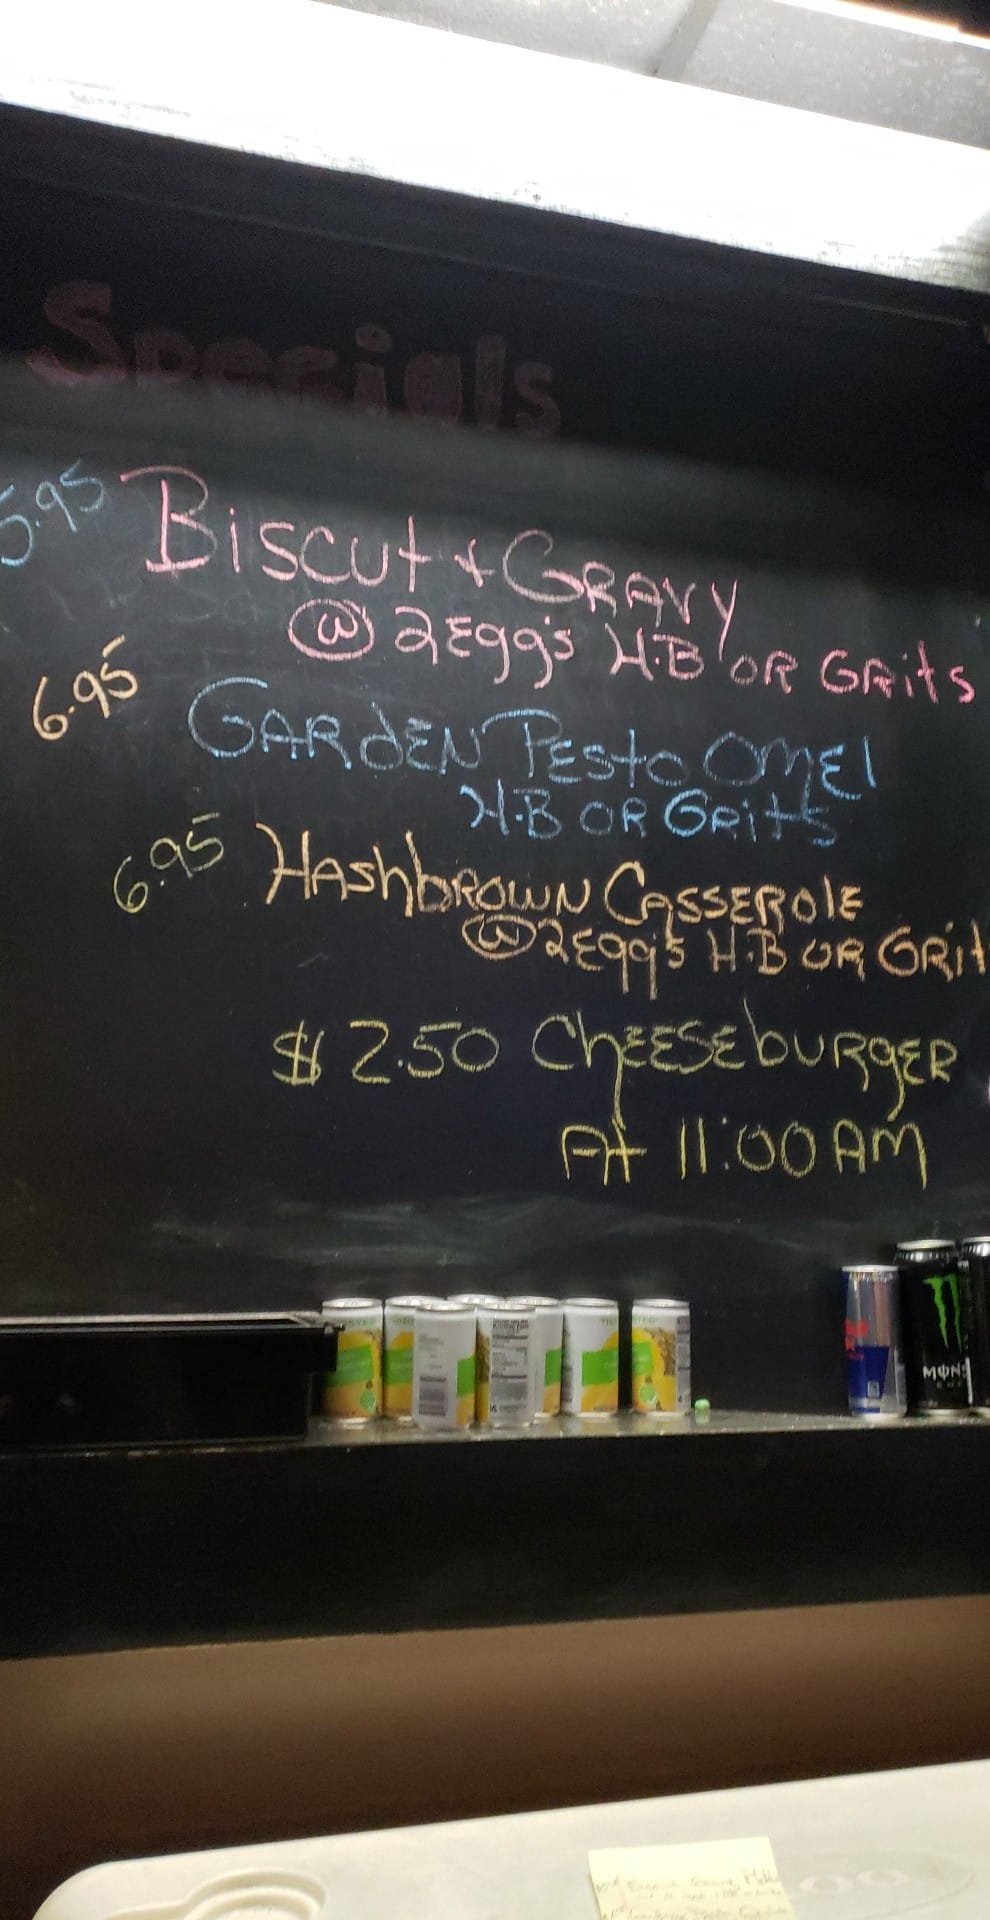 Specials
5.95 Biscut + GRAVY
W 2 Eggs H.B OR GRits
6.95 GARdEN PEsto OMEl
H.B OR GRitS
6.95 HAShbROWN CASSEROlE
W 2 Eggs H.B OR GRit
$ 2.50 ChEESEbURgER
At 11:00 AM
MONS